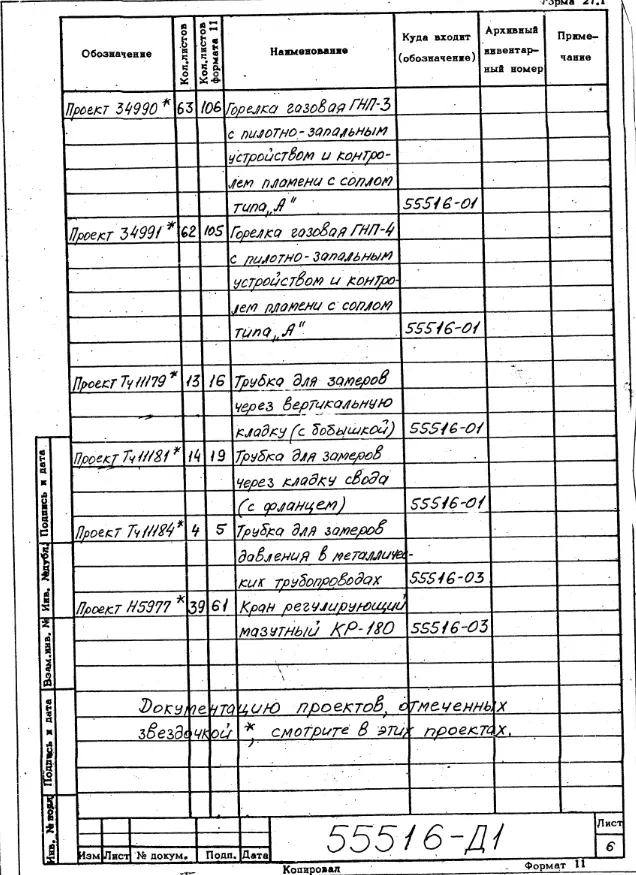 Форма 27.1
Обозначение Кол.листов Кол.листов формата 11 Наименование Куда входит (обозначение) Архивный инвентар- ный номер Приме- чание
Проект 34990* 63 106 Горелка газовая ГНП-3
с пилотно-запальным
устройством и контро-
лем пламени с соплом
типа „А" 55516-01
Проект 34991* 62 105 Горелка газовая ГНП-4
с пилотно-запальным
устройством и контро-
лем пламени с соплом
типа „А" 55516-01
Проект Тч11179* 13 16 Трубка для замеров
через вертикальную
кладку (с бобышкой) 55516-01
Проект Тч11181* 14 19 Трубка для замеров
через кладку свода
(с фланцем) 55516-01
Проект Тч11184* 4 5 Трубка для замеров
давления в металличес-
ких трубопроводах 55516-03
Проект Н5977* 39 61 Кран регулирующий
мазутный КР-180 55516-03
Документацию проектов, отмеченных
звездочкой *, смотрите в этих проектах.
Инв. № подл Подпись и дата Взам.инв. № Инв. №дубл. Подпись и дата
55516-Д1
Лист
6
Изм Лист № докум. Подп. Дата
Копировал Формат 11